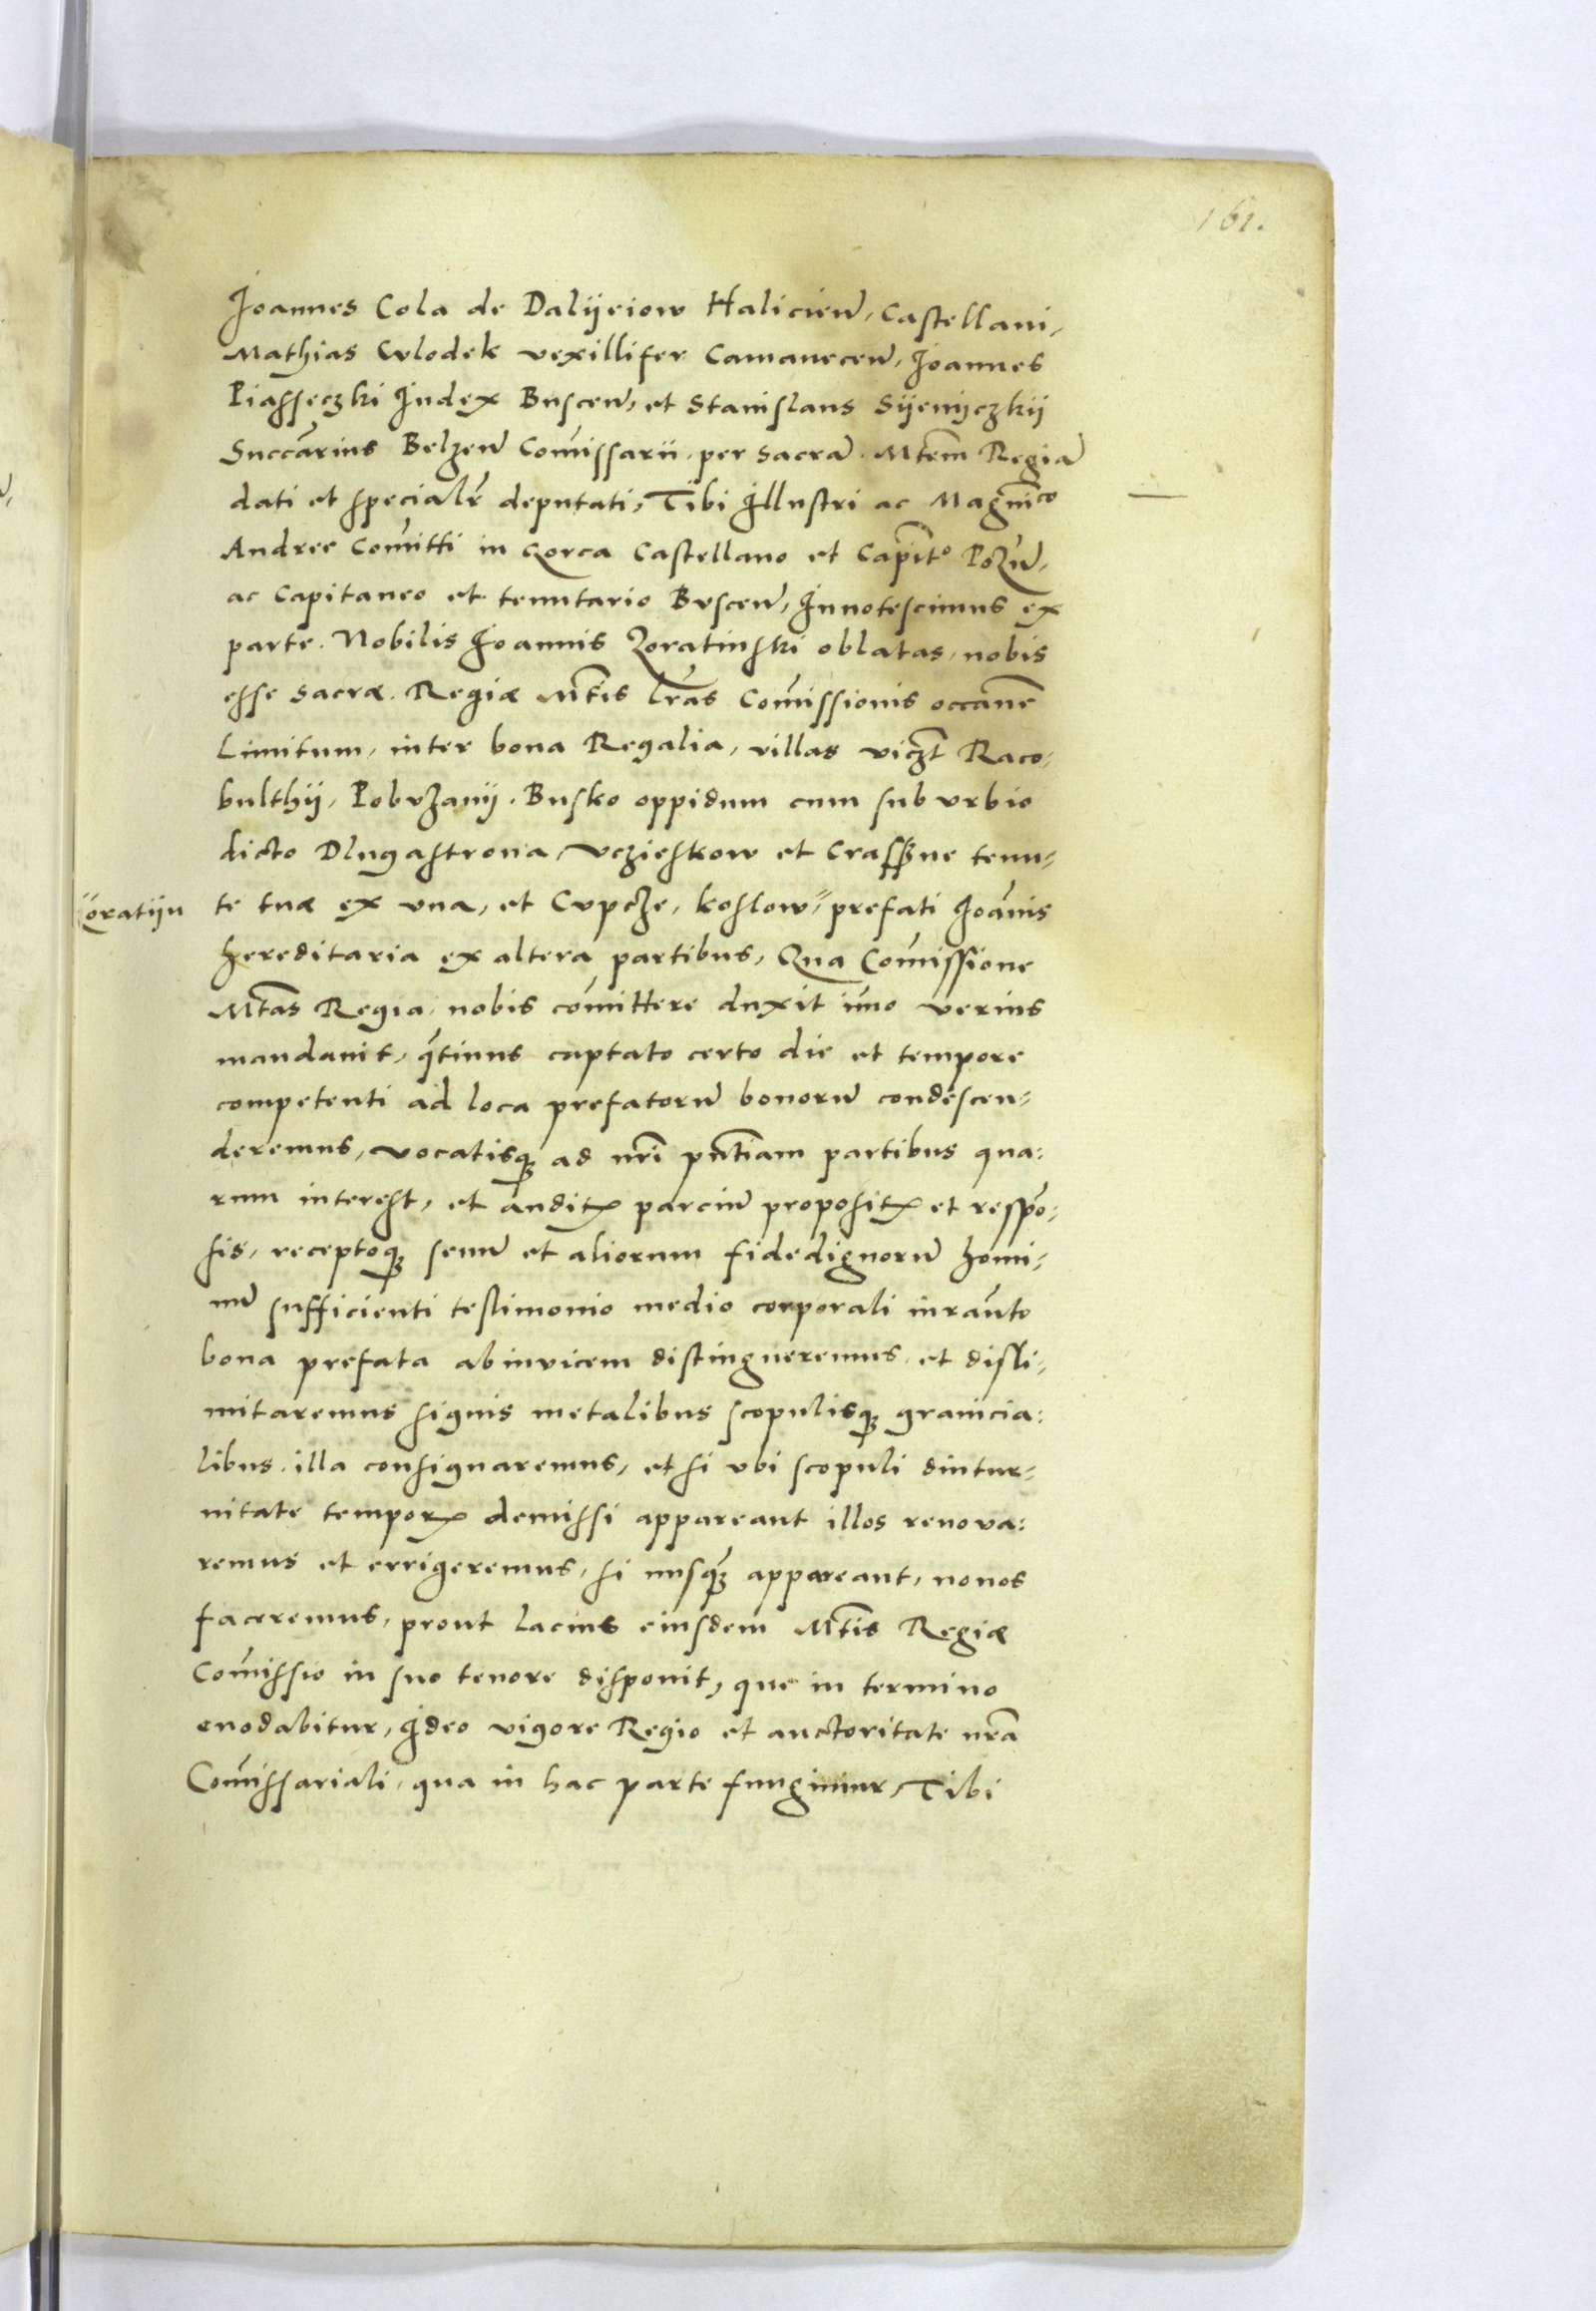 161.
Joannes Cola de Dalyeiow Halicieñ, Castellani,
Mathias Cvlodek vexillifer Camaneceñ, Joannes
Piasseczki Judex Busceñ, et Stanislaus Syenyczky
Succãrius Belzeñ Com̃issarii per sacrã Mtẽm Regiã
dati et specialr̃ deputati, Tibi Illustri ac Magnĩco
Andree Com̃itti in Gorca Castellano et Capĩto Pozñ,
ac Capitaneo et tenutario Bvsceñ, Innotescimus ex
parte Nobilis Joannis Zoratinski oblatas nobis
esse sacræ Regiæ Mtĩs lr̃as Com̃issionis occañe
Limitum, inter bona Regalia, villas viczt̃ Raco-
bulthy, Pobvzany, Busko oppidum cum sub vrbio
dicto Dlugastrona, Vczieskow et Crassne tenu-
Zoratyn
te tuæ ex vna, et Cvpcze, koslow prefati Joãnis
hereditaria ex altera partibus, Qua Com̃issione
Mtãs Regia nobis com̃ittere duxit im̃o verius
mandavit, q̃tinus captato certo die et tempore
competenti ad loca prefatorũ bonorũ condescen-
deremus, vocatisq; ad nr̃i pñtiam partibus qua-
rum interest, et auditꝭ parciũ propositꝭ et respõ-
sis, receptoq; senũ et aliorum fidedignorũ homi-
nũ sufficienti testimonio medio corporali iurãnto
bona prefata abinvicem distingueremus et disli-
mitaremus signis metalibus scopulisq; granicia-
libus illa consignaremus, et si vbi scopuli diutur-
nitate temporꝝ demissi appareant illos renova-
remus et errigeremus, si nusq̃ appareant, nouos
faceremus, prout lacius eiusdem Mtĩs Regiæ
Com̃issio in suo tenore disponit, que in termino
enodabitur, Ideo vigore Regio et auctoritate nr̃a
Com̃issariali, qua in hac parte fungimur, Tibi